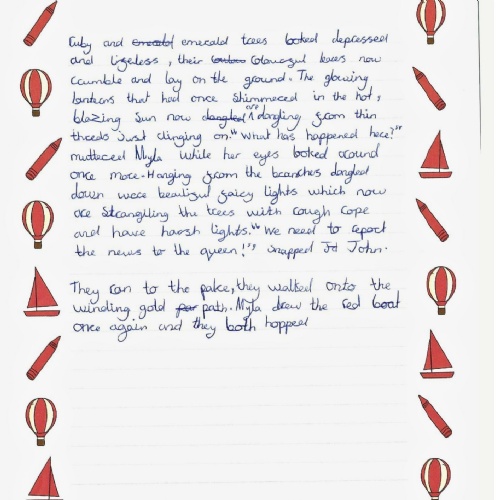 Ruby and emerald emerald trees looked depressed
and lifeless, their colourful leaves now
crumble and lay on the ground. The glowing
lanterns that had once shimmered in the hot,
blazing sun now dangled are dangling from thin
threads just clinging on. "What has happened here?"
muttered Myla while her eyes looked around
once more. Hanging from the branches dangled
down were beautiful fairy lights which now
are strangling the trees with rough rope
and have harsh lights. "We need to report
the news to the queen!" snapped Jd John.
They ran to the palce, they walked onto the
winding gold path. Myla drew the red boat
once again and they both hopped